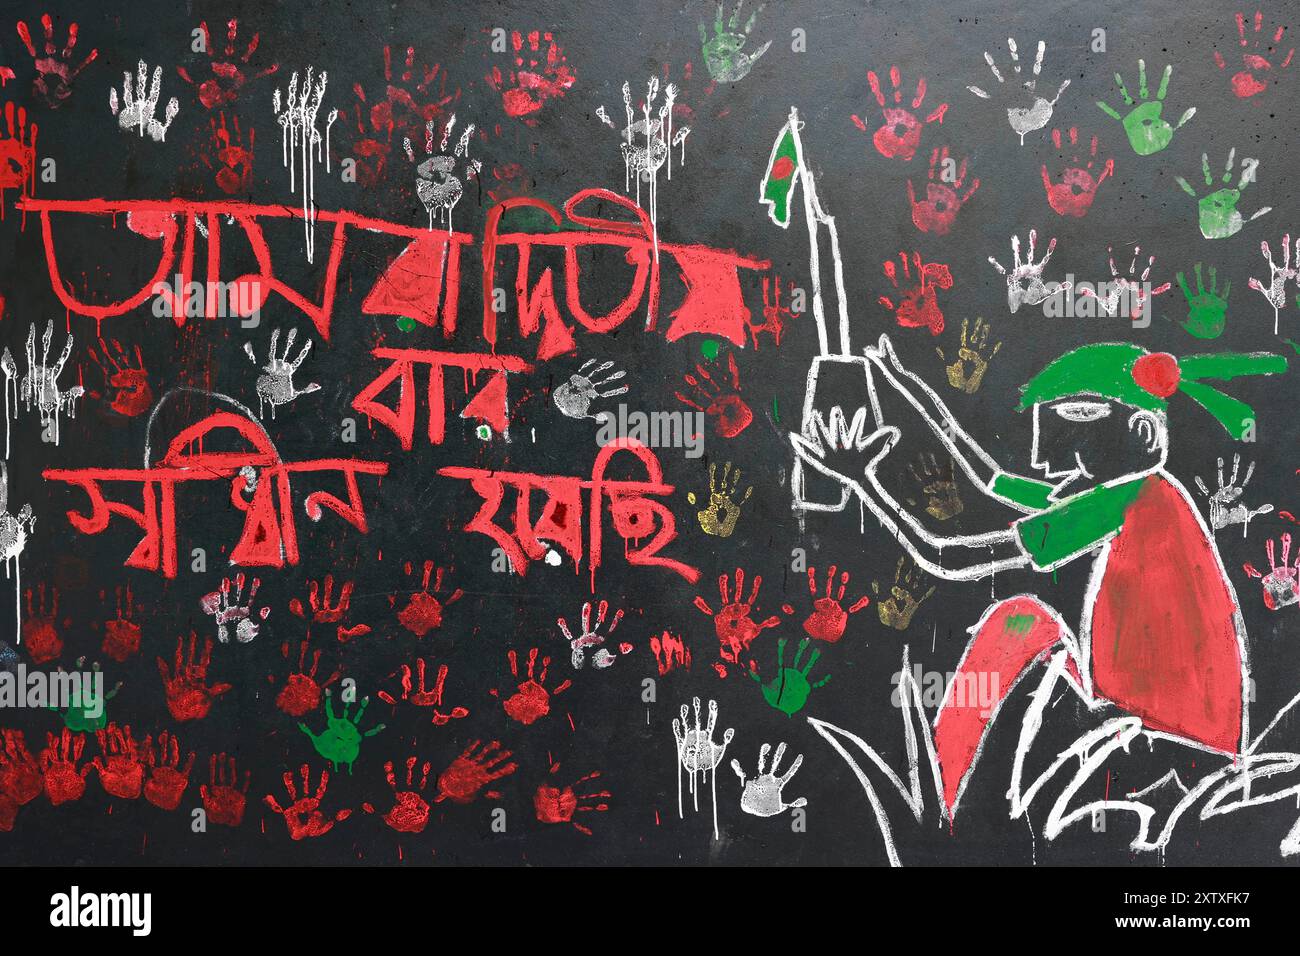 আমরা দ্বিতীয়
বার
স্বাধীন হয়েছি
a
alamy
Image ID: 2TXXFK7
www.alamy.com